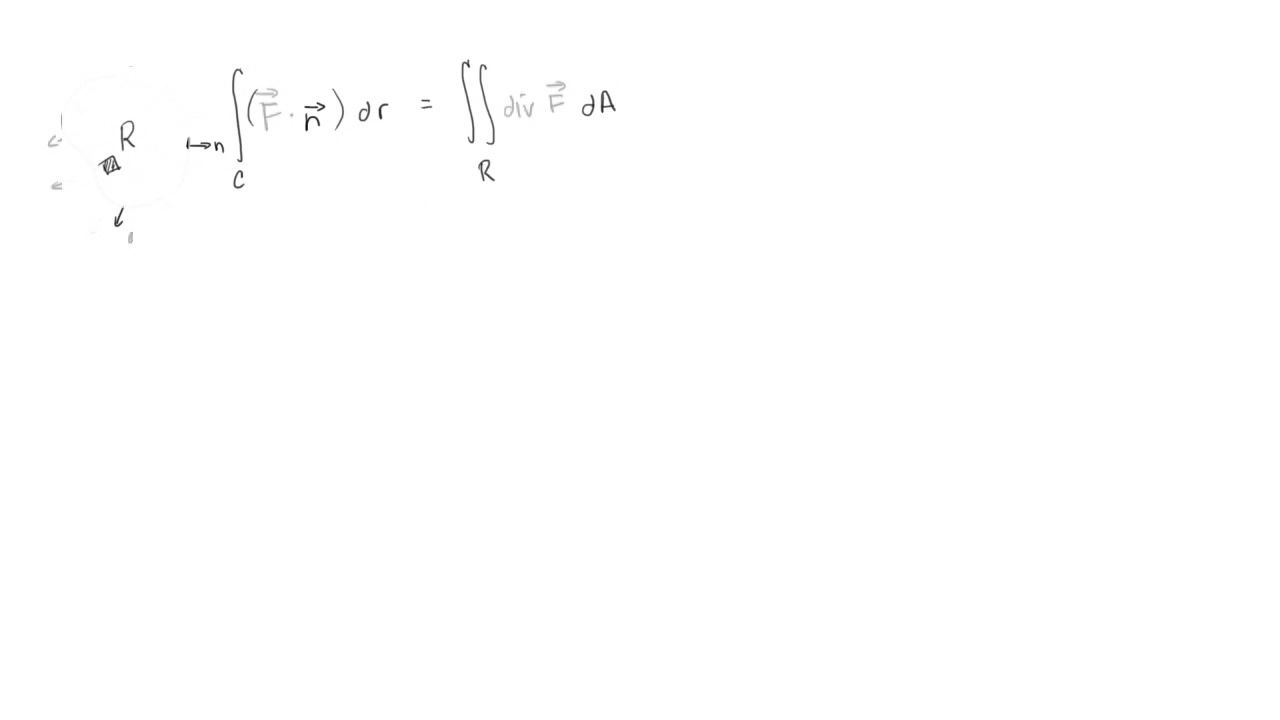 R →n ∫_C (F⃗ · n⃗) dr = ∬_R div F⃗ dA